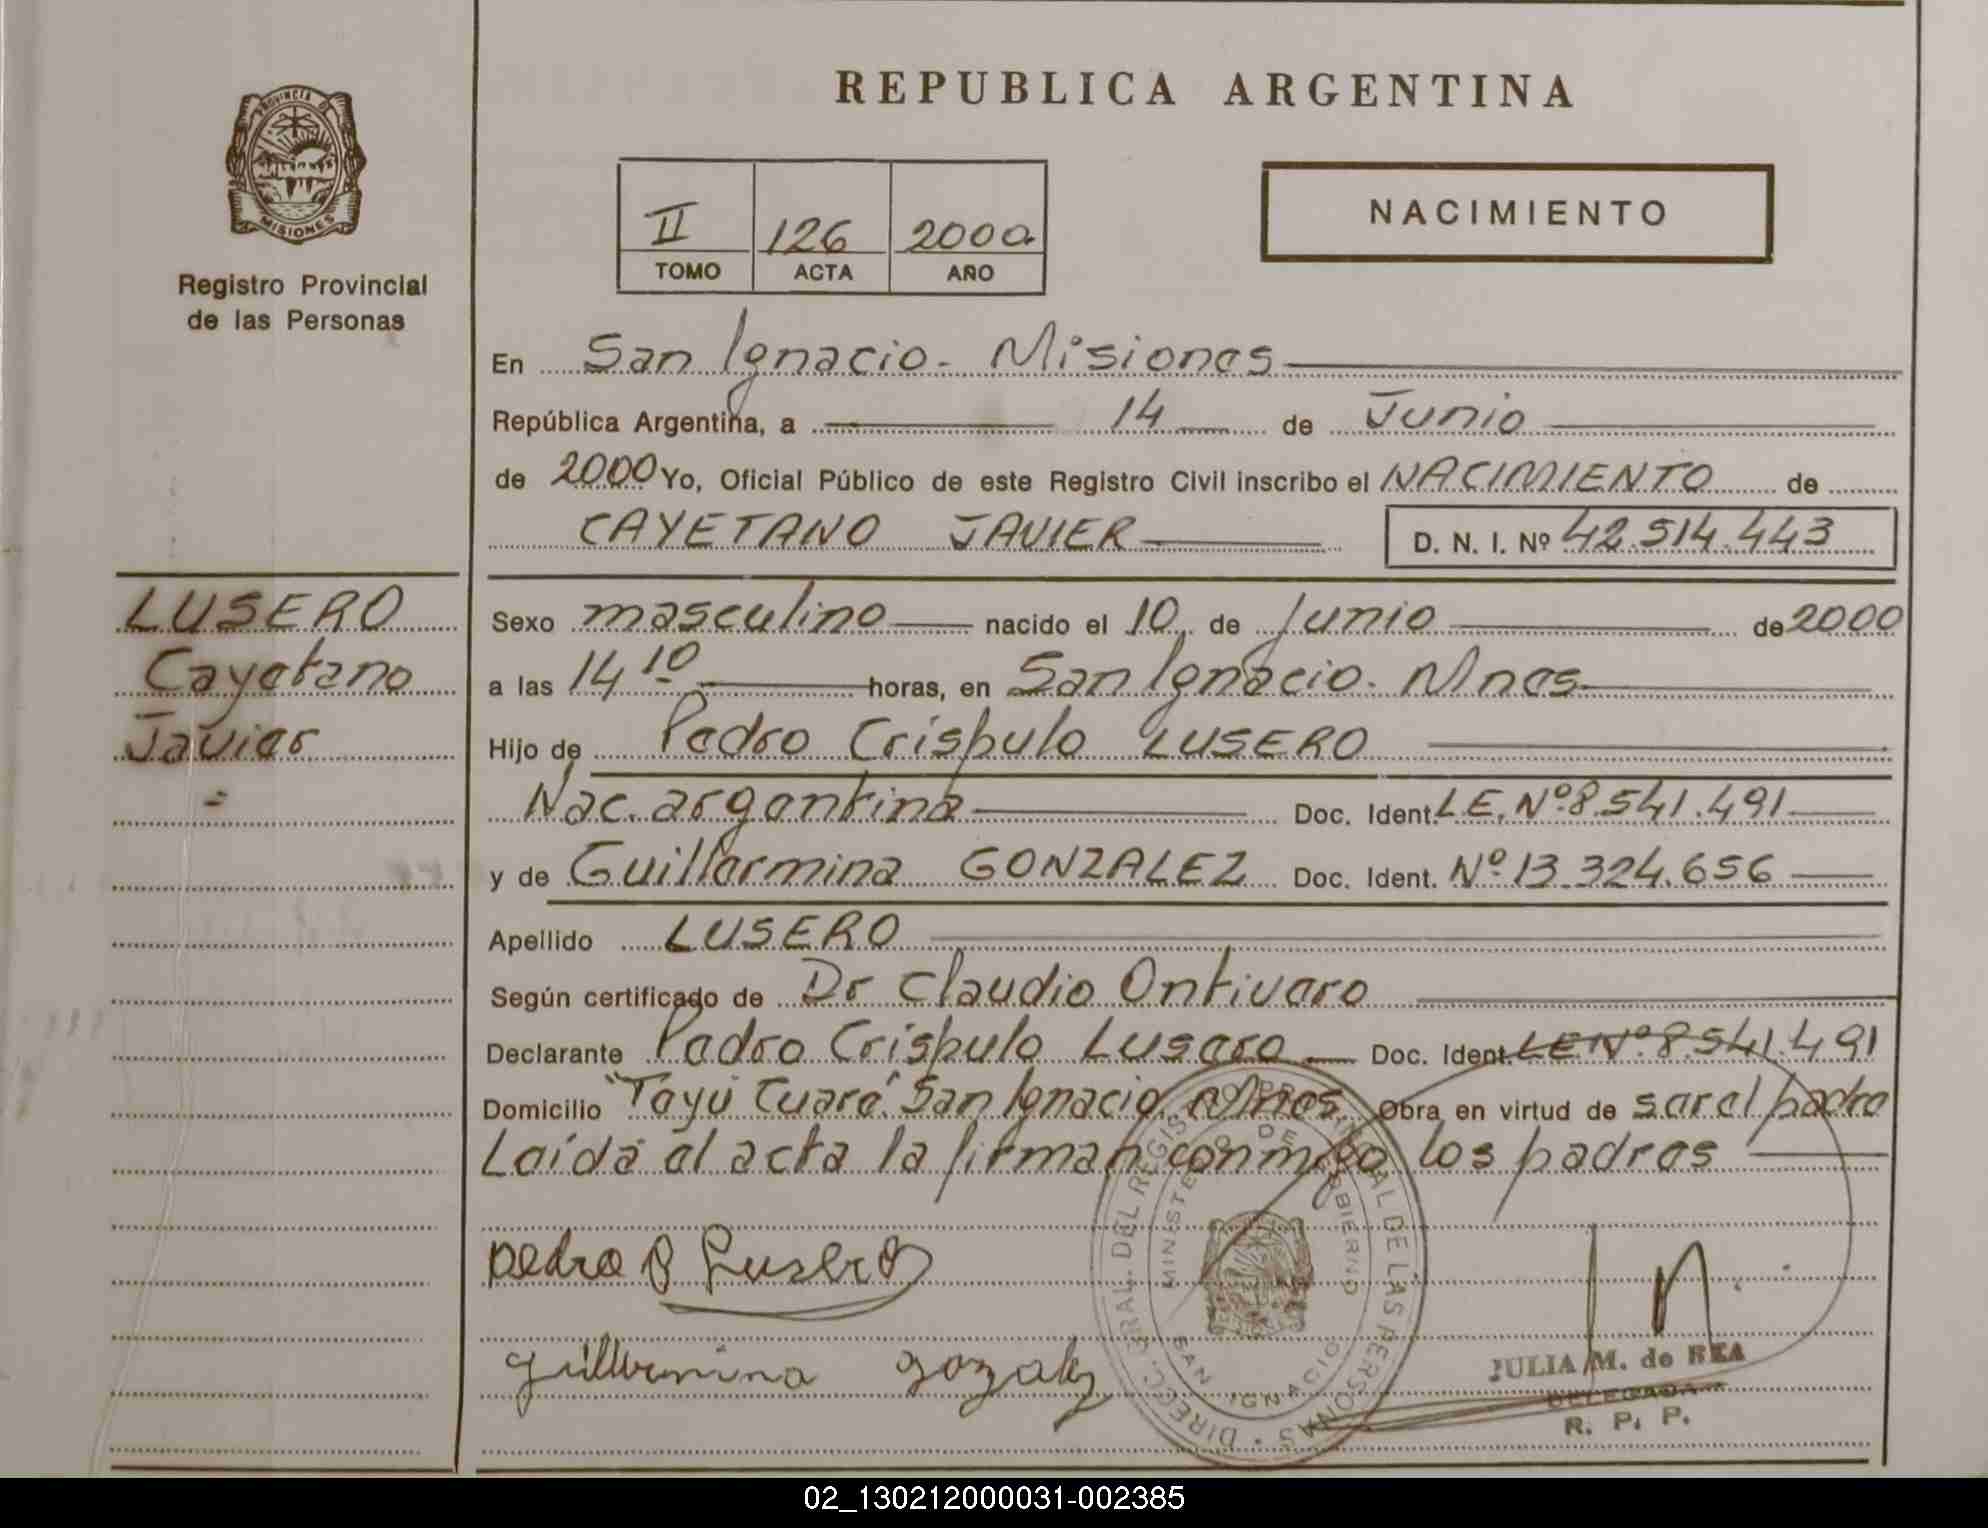 REPUBLICA ARGENTINA
PROVINCIA DE
MISIONES
Registro Provincial
de las Personas
II 126 2000
TOMO ACTA AÑO
NACIMIENTO
En San Ignacio - Misiones
República Argentina, a 14 de Junio
de 2000 Yo, Oficial Público de este Registro Civil inscribo el NACIMIENTO de
CAYETANO JAVIER D. N. I. Nº 42.514.443
LUSERO
Cayetano
Javier
Sexo masculino nacido el 10 de Junio de 2000
a las 14 10 horas, en San Ignacio - Mnes
Hijo de Pedro Crispulo LUSERO
Nac. argentina Doc. Ident. L.E. Nº 8.541.491
y de Guillermina GONZALEZ Doc. Ident. Nº 13.324.656
Apellido LUSERO
Según certificado de Dr Claudio Ontivero
Declarante Pedro Crispulo Lusero Doc. Ident. LE Nº 8.541.491
Domicilio "Teyú Cuaré" San Ignacio Mnes Obra en virtud de ser el padre
Leída el acta la firman conmigo los padres
Pedro Lusero
guillermina gozalez
DIREC. GRAL. DEL REGISTRO PROVINCIAL DE LAS PERSONAS
MINISTERIO DE GOBIERNO
SAN IGNACIO
JULIA M. de REA
DELEGADA
R. P. P.
02_130212000031-002385